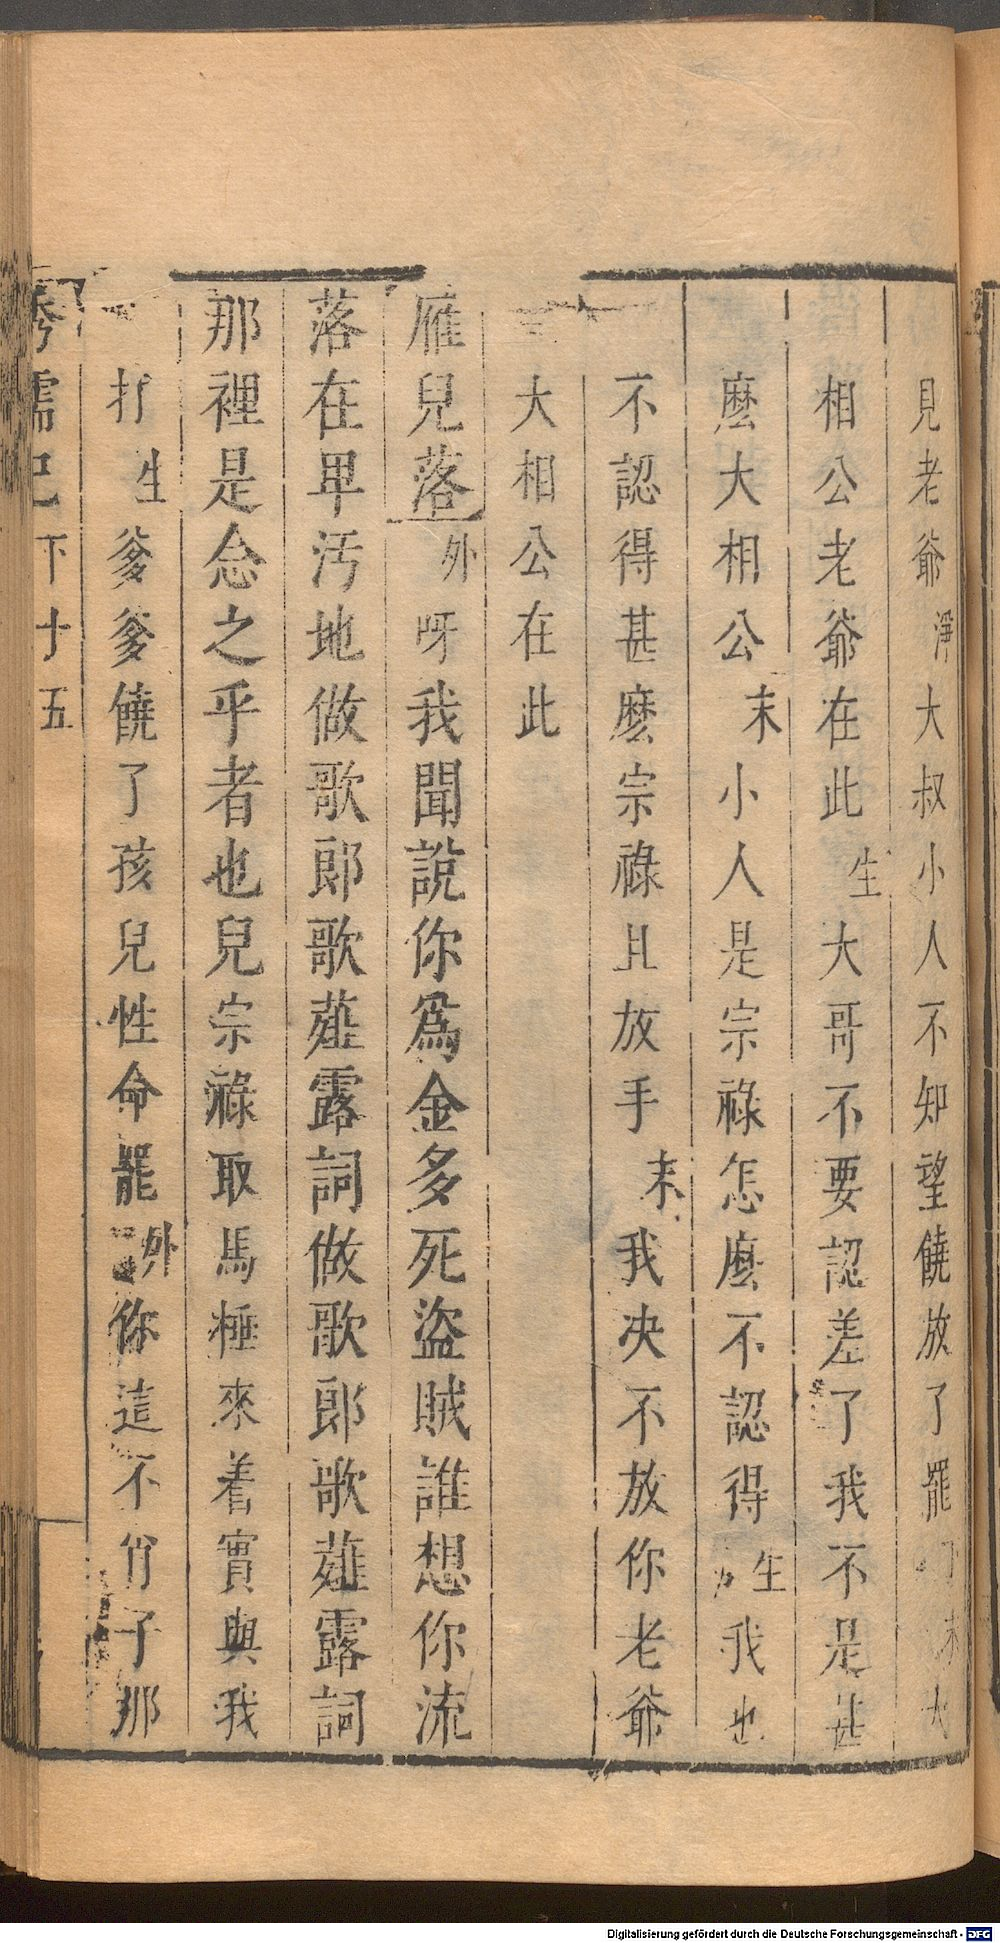 見老爺淨大叔小人不知望饒放了罷末大
相公老爺在此生大哥不要認差了我不是甚
麽大相公末小人是宗祿怎麽不認得生我也
不認得甚麽宗祿且放手末我决不放你老爺
大相公在此
雁兒落外呀我聞說你爲金多死盜賊誰想你流
落在卑汚地做歌郎歌薤露詞做歌郎歌薤露詞
那裡是念之乎者也兒宗祿取馬極來着實與我
打生爹爹饒了孩兒性命罷外你這不肖子那
繡襦記下十五
Digitalisierung gefördert durch die Deutsche Forschungsgemeinschaft - DFG